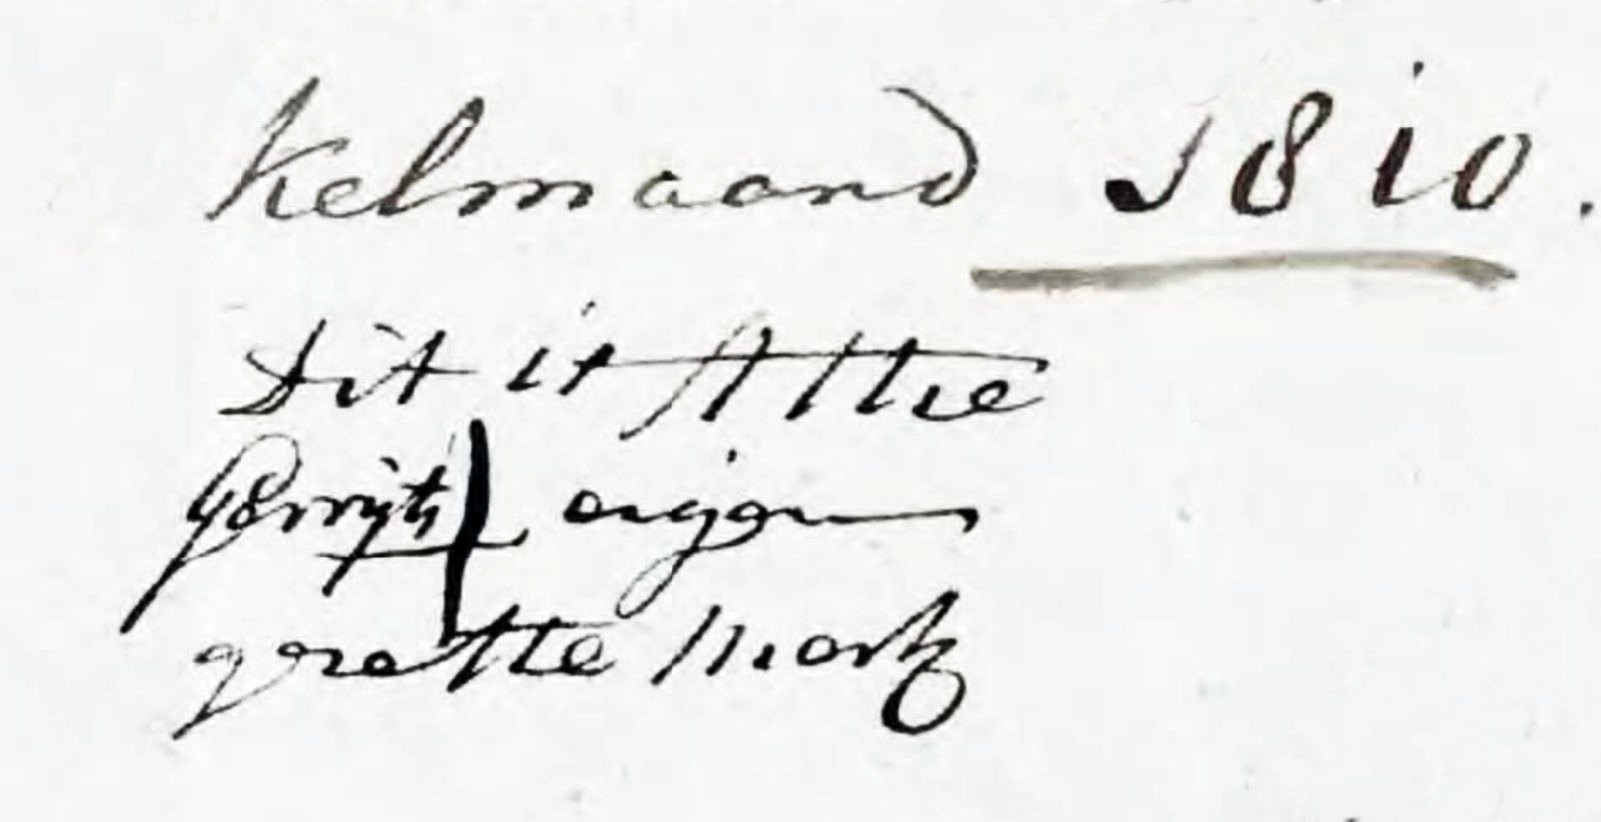 Kelmaand 1810.
Dit is Attie
Gerrijts eigen
gesette Merk